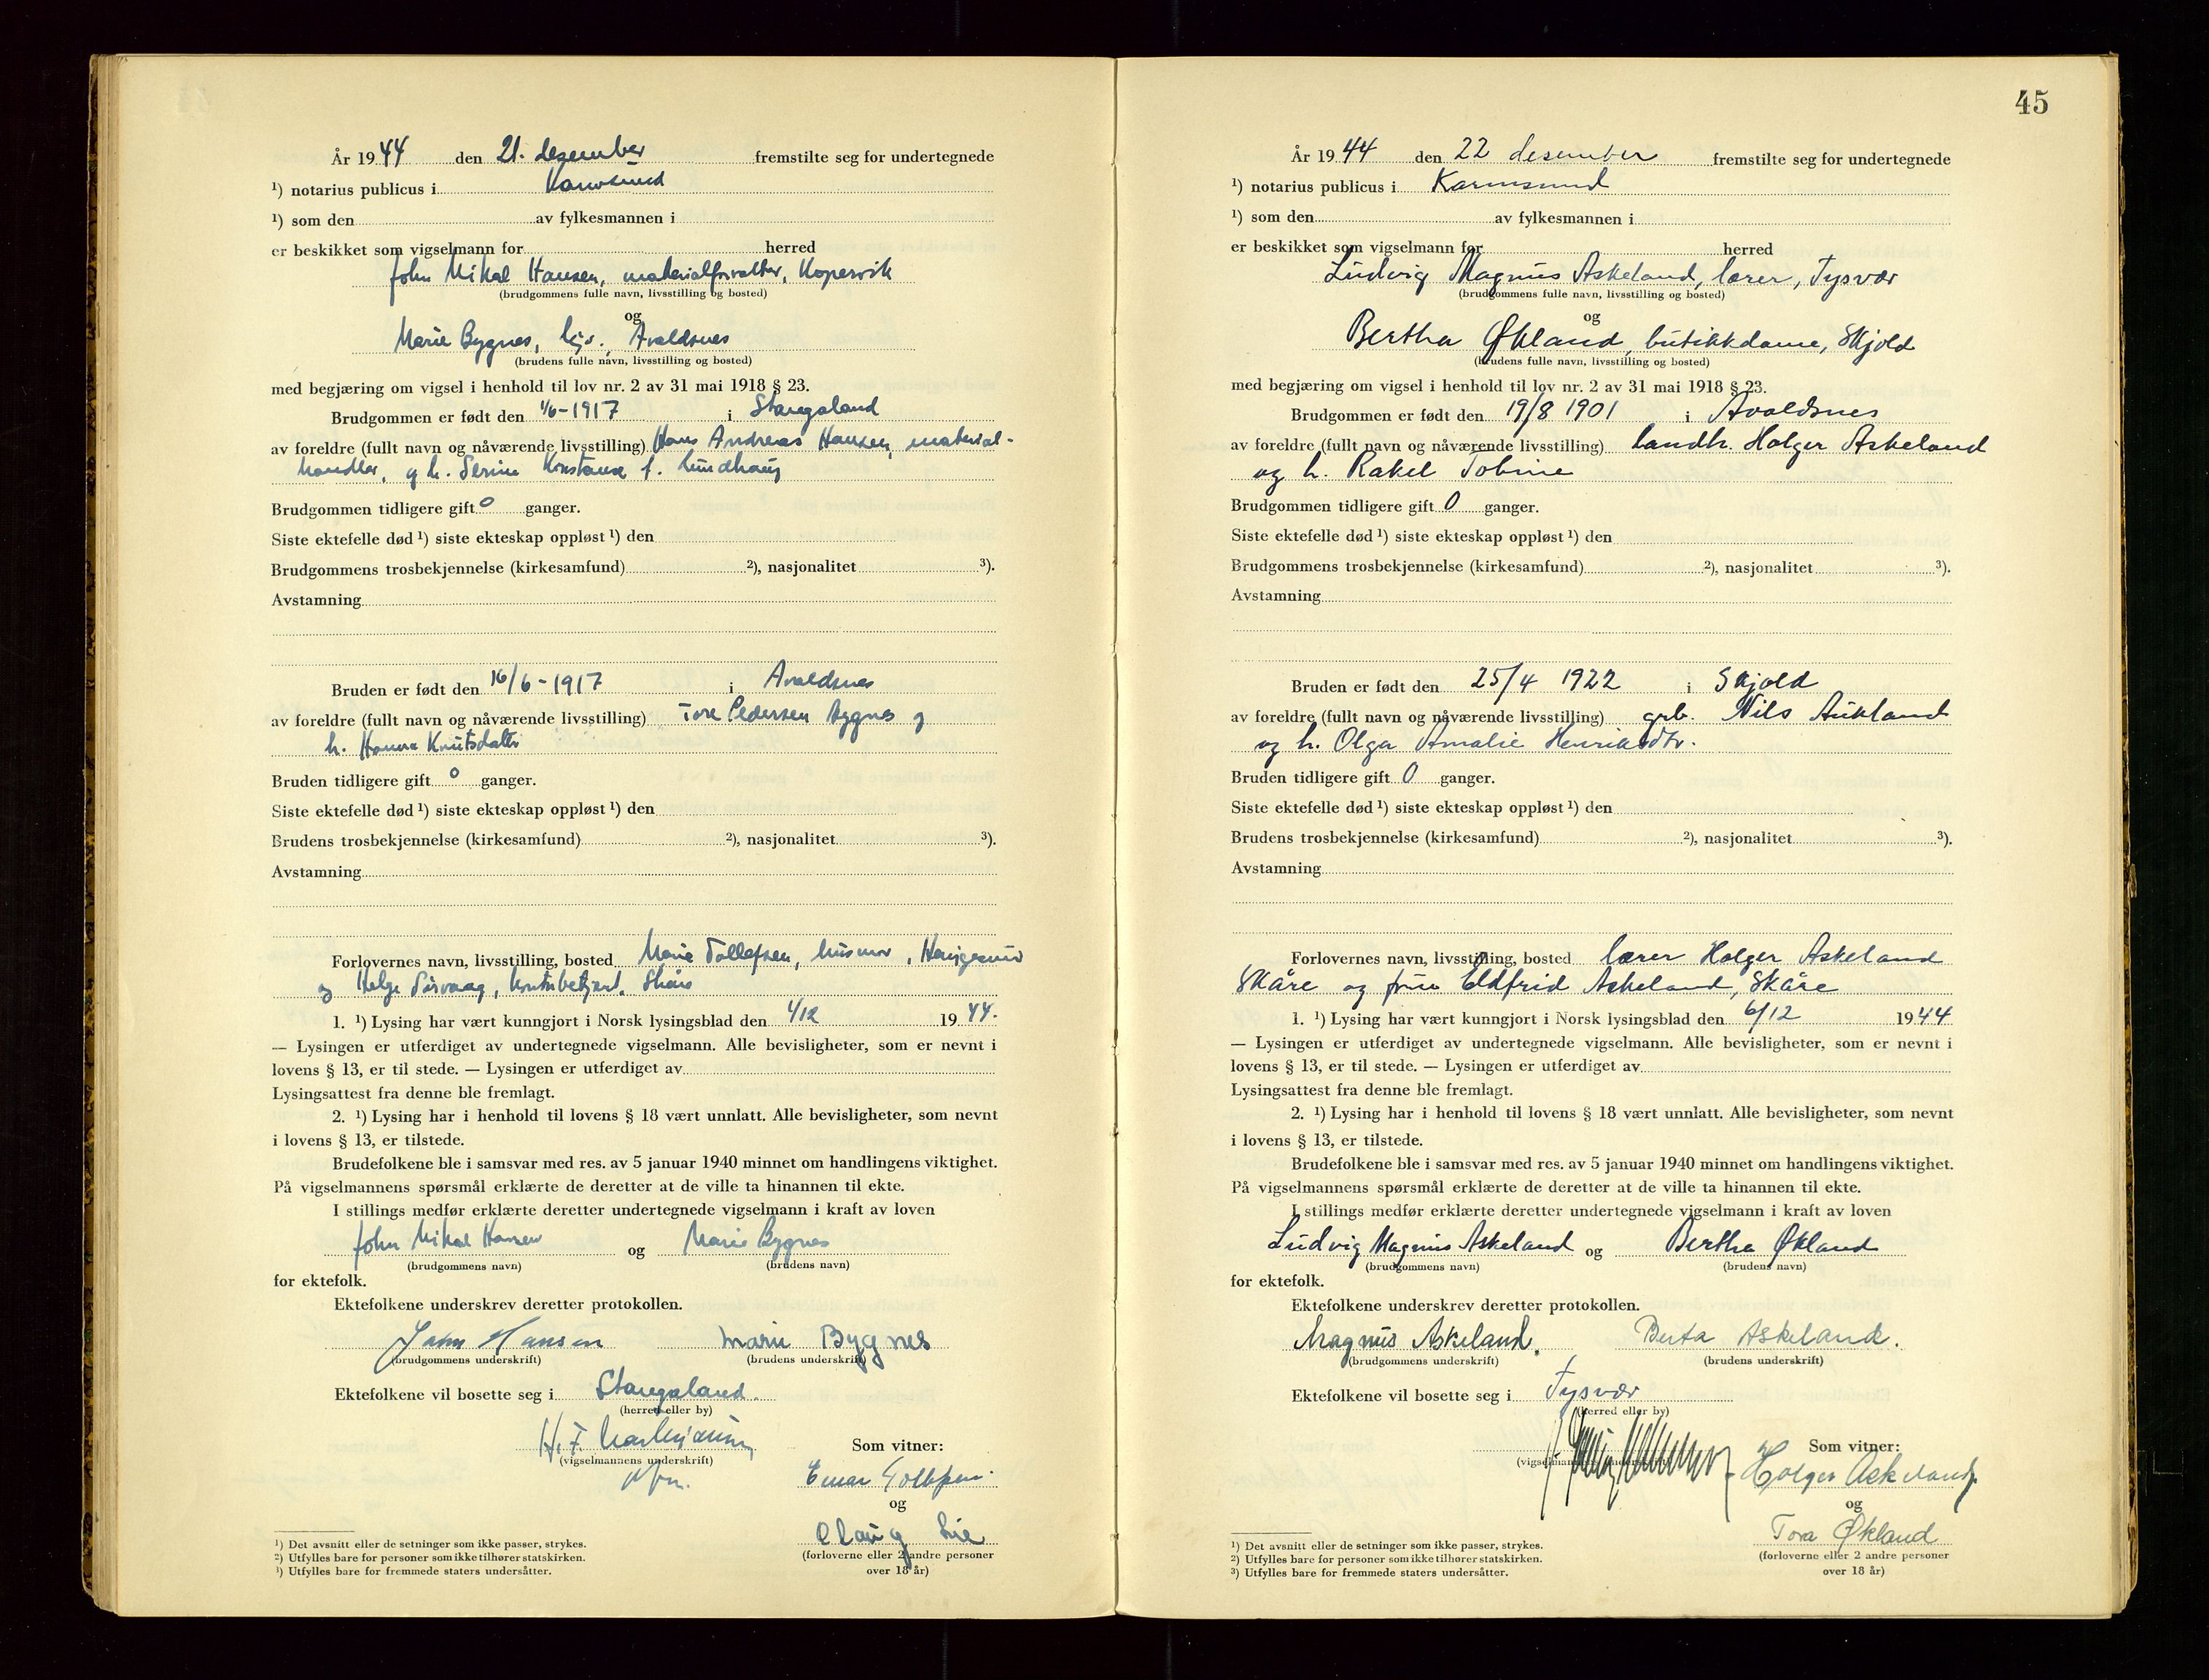 År 1944 den 21. desember fremstilte seg for undertegnede
¹) notarius publicus i Karmsund
¹) som den av fylkesmannen i
er beskikket som vigselmann for herred
John Mikal Hansen, materialforvalter, Kopervik
(brudgommens fulle navn, livsstilling og bosted)
og
Marie Bygnes, Avaldsnes
(brudens fulle navn, livsstilling og bosted)
med begjæring om vigsel i henhold til lov nr. 2 av 31 mai 1918 § 23.
Brudgommen er født den 1/6-1917 i Stangaland
av foreldre (fullt navn og nåværende livsstilling) Hans Andreas Hansen, material-
handler, og h. Serine Konstanse f. Lundhaug
Brudgommen tidligere gift 0 ganger.
Siste ektefelle død ¹) siste ekteskap oppløst ¹) den
Brudgommens trosbekjennelse (kirkesamfund) ²), nasjonalitet ³).
Avstamning
Bruden er født den 16/6-1917 i Avaldsnes
av foreldre (fullt navn og nåværende livsstilling) Tore Pedersen Bygnes og
h. Hanna Knutsdatter
Bruden tidligere gift 0 ganger.
Siste ektefelle død ¹) siste ekteskap oppløst ¹) den
Brudens trosbekjennelse (kirkesamfund) ²), nasjonalitet ³).
Avstamning
Forlovernes navn, livsstilling, bosted Marie Tollefsen, husmor, Haugesund
og Helge Sørvaag, kontorbetjent, Skåre
1. ¹) Lysing har vært kunngjort i Norsk lysingsblad den 1/12 1944.
— Lysingen er utferdiget av undertegnede vigselmann. Alle bevisligheter, som er nevnt i
lovens § 13, er til stede. — Lysingen er utferdiget av
Lysingsattest fra denne ble fremlagt.
2. ¹) Lysing har i henhold til lovens § 18 vært unnlatt. Alle bevisligheter, som nevnt
i lovens § 13, er tilstede.
Brudefolkene ble i samsvar med res. av 5 januar 1940 minnet om handlingens viktighet.
På vigselmannens spørsmål erklærte de deretter at de ville ta hinannen til ekte.
I stillings medfør erklærte deretter undertegnede vigselmann i kraft av loven
John Mikal Hansen og Marie Bygnes
(brudgommens navn) (brudens navn)
for ektefolk.
Ektefolkene underskrev deretter protokollen.
John Hansen Marie Bygnes
(brudgommens underskrift) (brudens underskrift)
Ektefolkene vil bosette seg i Stangaland
(herred eller by)
H. F.
(vigselmannens underskrift)
Som vitner:
Einar Tollefsen
og
Olaug Lie
(forloverne eller 2 andre personer
over 18 år)
¹) Det avsnitt eller de setninger som ikke passer, strykes.
²) Utfylles bare for personer som ikke tilhører statskirken.
³) Utfylles bare for fremmede staters undersåtter.
45
År 1944 den 22 desember fremstilte seg for undertegnede
¹) notarius publicus i Karmsund
¹) som den av fylkesmannen i
er beskikket som vigselmann for herred
Ludvig Magnus Askeland, lærer, Tysvær
(brudgommens fulle navn, livsstilling og bosted)
og
Bertha Økland, butikkdame, Skjold
(brudens fulle navn, livsstilling og bosted)
med begjæring om vigsel i henhold til lov nr. 2 av 31 mai 1918 § 23.
Brudgommen er født den 19/8 1901 i Avaldsnes
av foreldre (fullt navn og nåværende livsstilling) landh. Holger Askeland
og h. Rakel Tobine
Brudgommen tidligere gift 0 ganger.
Siste ektefelle død ¹) siste ekteskap oppløst ¹) den
Brudgommens trosbekjennelse (kirkesamfund) ²), nasjonalitet ³).
Avstamning
Bruden er født den 25/4 1922 i Skjold
av foreldre (fullt navn og nåværende livsstilling) grb. Nils Aukland
og h. Olga Amalie Henriksdtr.
Bruden tidligere gift 0 ganger.
Siste ektefelle død ¹) siste ekteskap oppløst ¹) den
Brudens trosbekjennelse (kirkesamfund) ²), nasjonalitet ³).
Avstamning
Forlovernes navn, livsstilling, bosted lærer Holger Askeland
Skåre og frue Oldfrid Askeland, Skåre
1. ¹) Lysing har vært kunngjort i Norsk lysingsblad den 6/12 1944
— Lysingen er utferdiget av undertegnede vigselmann. Alle bevisligheter, som er nevnt i
lovens § 13, er til stede. — Lysingen er utferdiget av
Lysingsattest fra denne ble fremlagt.
2. ¹) Lysing har i henhold til lovens § 18 vært unnlatt. Alle bevisligheter, som nevnt
i lovens § 13, er tilstede.
Brudefolkene ble i samsvar med res. av 5 januar 1940 minnet om handlingens viktighet.
På vigselmannens spørsmål erklærte de deretter at de ville ta hinannen til ekte.
I stillings medfør erklærte deretter undertegnede vigselmann i kraft av loven
Ludvig Magnus Askeland og Bertha Økland
(brudgommens navn) (brudens navn)
for ektefolk.
Ektefolkene underskrev deretter protokollen.
Magnus Askeland. Berta Askeland.
(brudgommens underskrift) (brudens underskrift)
Ektefolkene vil bosette seg i Tysvær
(herred eller by)
(vigselmannens underskrift)
Som vitner:
Holger Askeland
og
Tora Økland
(forloverne eller 2 andre personer
over 18 år)
¹) Det avsnitt eller de setninger som ikke passer, strykes.
²) Utfylles bare for personer som ikke tilhører statskirken.
³) Utfylles bare for fremmede staters undersåtter.